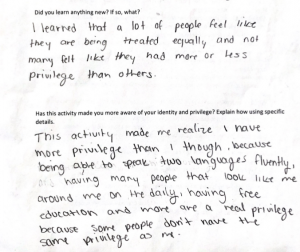 Did you learn anything new? If so, what?
I learned that a lot of people feel like
they are being treated equally and not
many felt like they had more or less
privilege than others.
Has this activity made you more aware of your identity and privilege? Explain how using specific
details.
This activity made me realize I have
more privilege than I though, because
being able to speak two languages fluently,
having many people that look like me
around me on the daily, having free
education and more are a real privilege
because some people don't have the
same privilege as me.